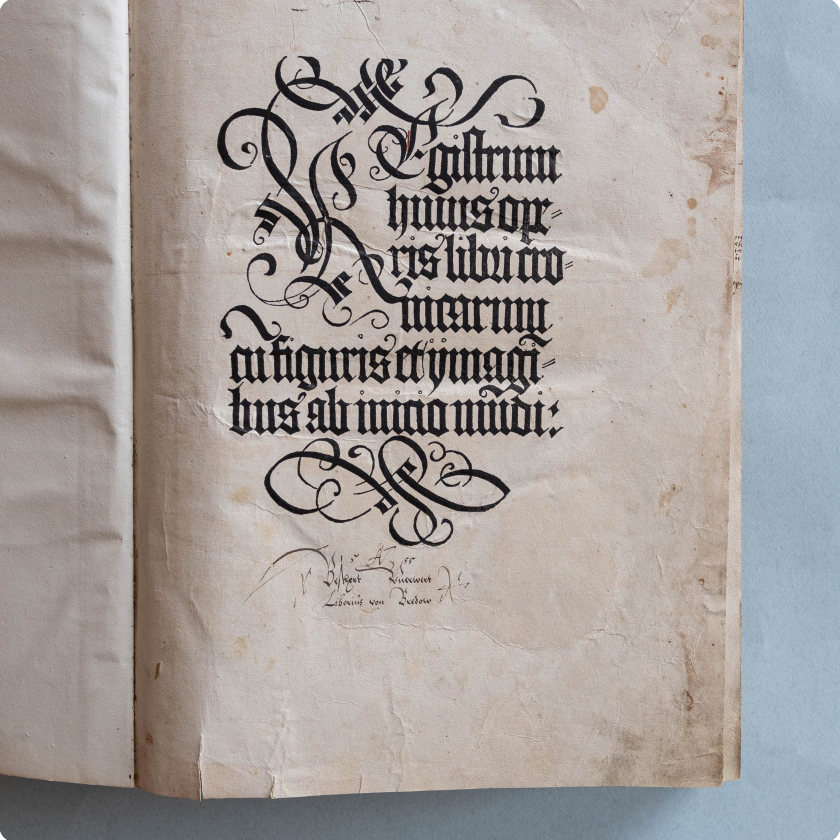 REgistrum
huius ope=
ris libri cro=
nicarum
cū figuris et ymagi=
bus ab inicio mūdi:
15 A 55
Liborius von Bredow